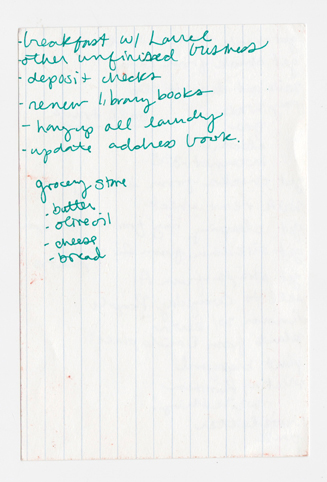 -breakfast w/ Laurel
-other unfinished business
-deposit checks
-renew library books
-hang up all laundry
-update address book.
grocery store
-butter
-olive oil
-cheese
-bread